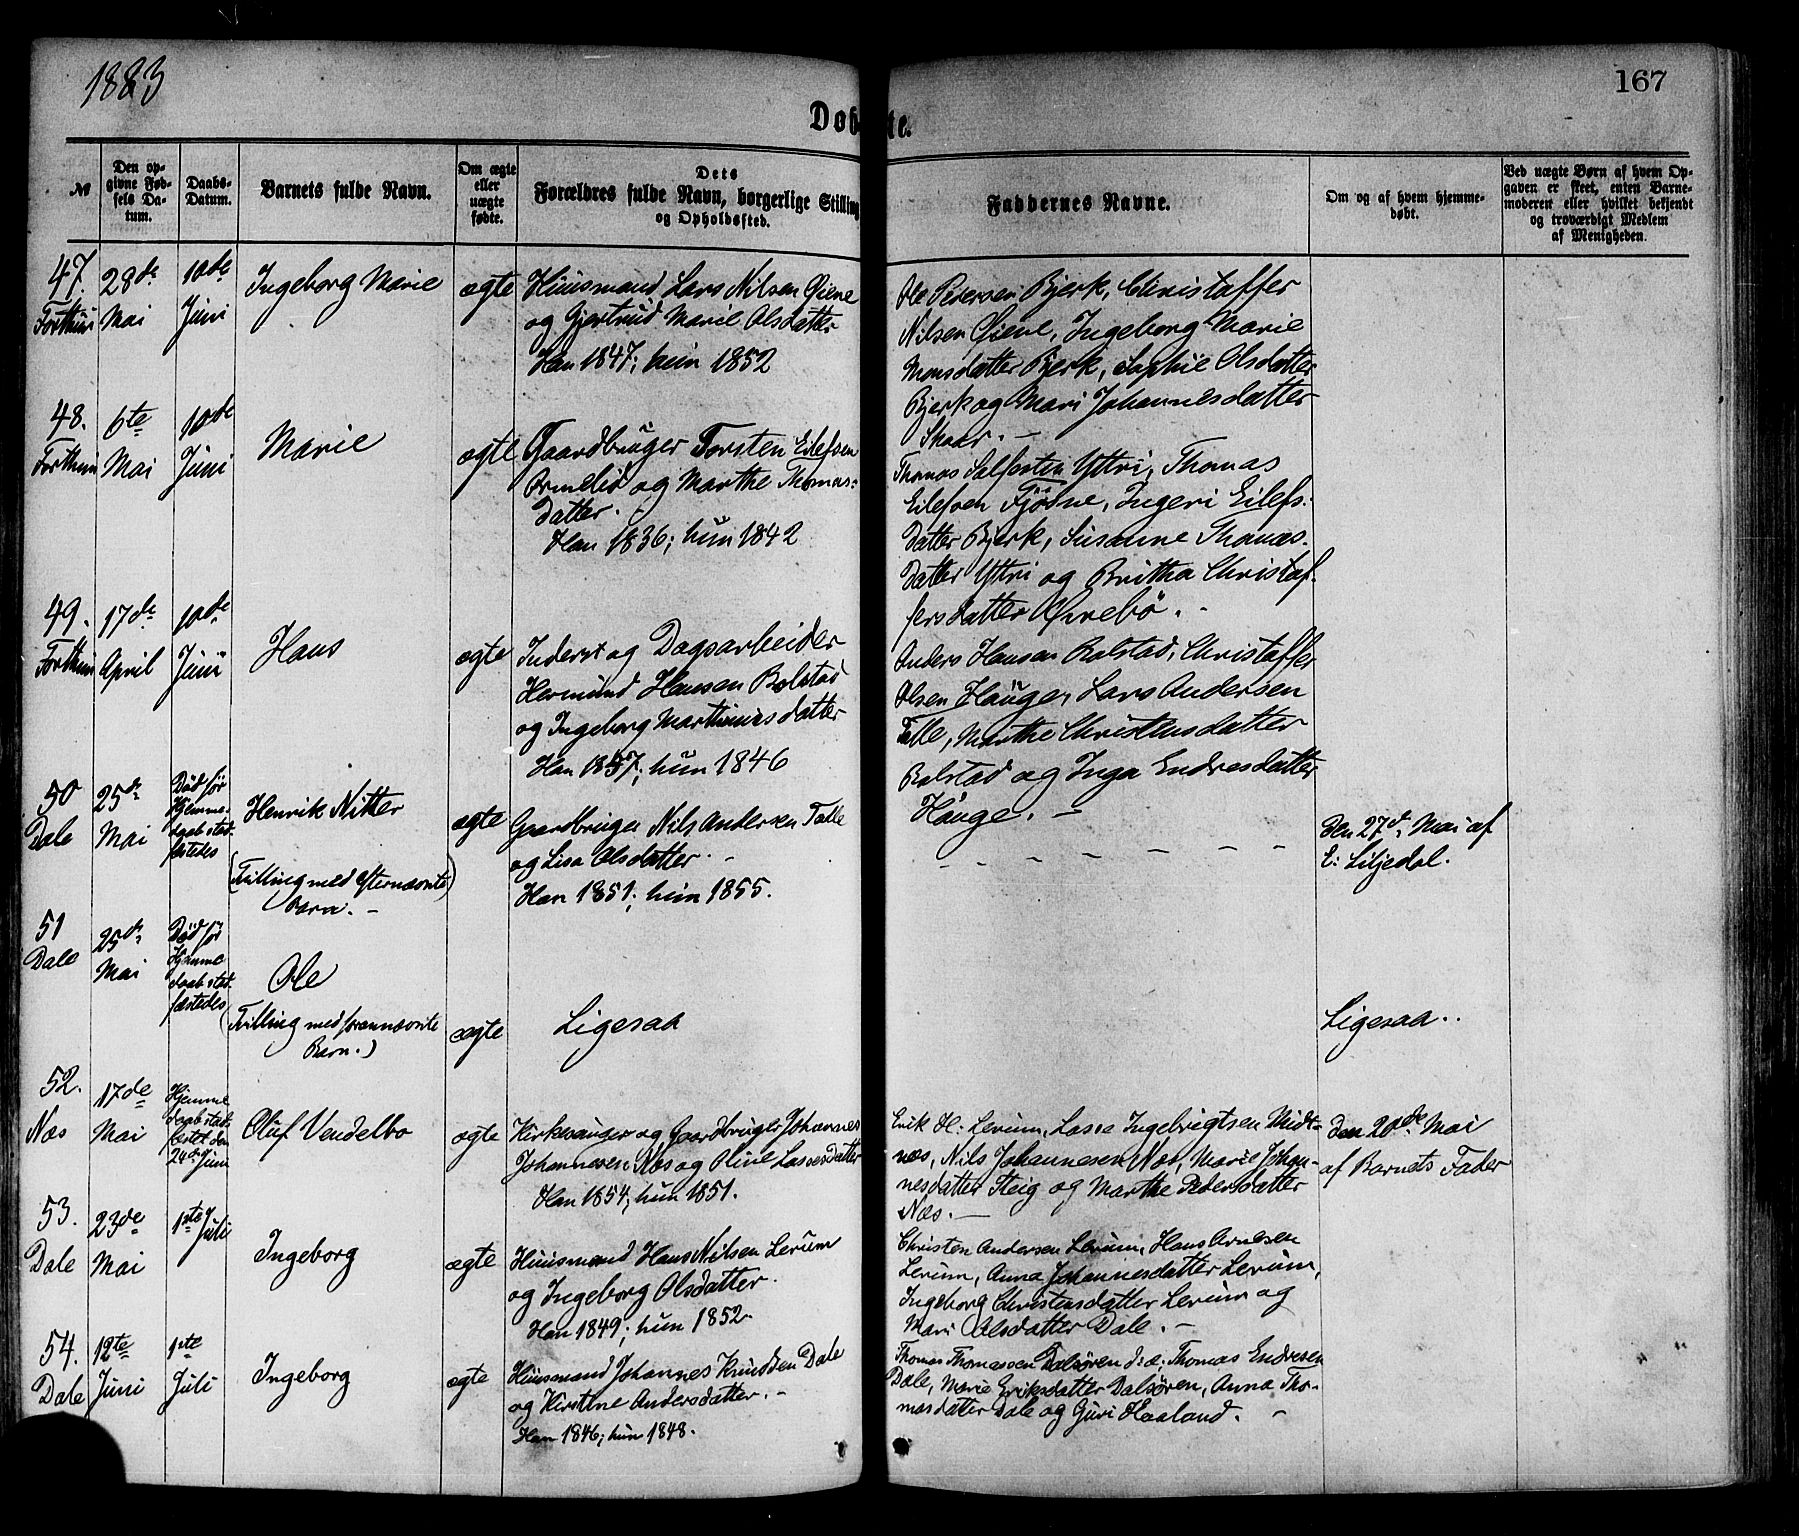 1883
167
Døbte.
No
Den opgivne Fødsels Datum.
Daabs-Datum.
Barnets fulde Navn.
Om ægte eller uægte fødte.
Dets Forældres fulde Navn, borgerlige Stilling og Opholdssted.
Faddernes Navne.
Om og af hvem hjemmedøbt.
Ved uægte Børn af hvem Opgaven er skeet, enten Barnemoderen eller hvilket bekjendt og troværdigt Medlem af Menigheden.
47. 28de 10de Ingeborg Marie ægte Huusmand Lars Nilsen Øiene
Forthun Mai Juni og Gjertrud Marie Olsdatter
Han 1847; hun 1852
Ole Pedersen Bjerk, Christaffer
Nilsen Øiene, Ingeborg Marie
Monsdatter Bjerk, Sophie Olsdatter
Bjerk og Mari Johannesdatter
Skaar. -
48. 6te 10de Marie ægte Gaardbruger Torsten Eilefsen
Forthun Mai Juni Ormelid og Marthe Thomas-
datter.
Han 1836; hun 1842
Thomas Salfestin Yttri, Thomas
Eilefsen Fjøsne, Ingeri Eilefs-
datter Bjerk, Susanne Thomas-
datter Yttri og Britha Christaf-
fersdatter Øvrebö. -
49. 17de 10de Hans ægte Inderst og Dagsarbeider
Forthun April Juni Hermund Hansen Bolstad
og Ingeborg Marthinusdatter
Han 1857; hun 1846
Anders Hansen Bolstad, Christaffer
Olsen Hauge, Lars Andersen
Talle, Marthe Christensdatter
Bolstad og Inga Endresdatter
Hauge. -
50 25de Død før Henrik Nitter ægte Gaardbruger Nils Andersen Talle
Dale Mai Hjemme-
daab stad-
fæstedes
(Tvilling med efternævnte
Barn. -
og Lisa Olsdatter. -
Han 1851; hun 1855.
- - - - - - -
Den 27de Mai af
E: Liljedal.
51 25de Død før Ole ægte Ligesaa
Dale Mai Hjemme
daab stad-
fæstedes
(Tvilling med forannævnte
Barn.)
Ligesaa..
52. 17de Hjemme Oluf Vendelbo ægte Kirkesanger og Gaardbruger Johannes
Næs Mai daab stad-
fæstet den
24de Juni
Johannesen Næs og Oline Lassesdatter
Han 1854; hun 1851.
Erik H: Lerum, Lasse Ingebrigtsen Midt-
næs, Nils Johannesen Næs, Marie Johan-
nesdatter Steig og Marthe Pedersdatter
Næs. -
Den 20de Mai
af Barnets Fader
53. 23de 1ste Juli Ingeborg ægte Huusmand Hans Nilsen Lerum
Dale Mai og Ingeborg Olsdatter.
Han 1849; hun 1852.
Christen Andersen Lerum, Hans Arnesen
Lerum, Anna Johannesdatter Lerum,
Ingeborg Christensdatter Lerum og
Mari Olsdatter Dale. -
54. 12te 1ste Ingeborg ægte Huusmand Johannes Knudsen Dale
Dale Juni Juli og Kirstine Andersdatter. -
Han 1846; hun 1848.
Thomas Thomassen Dalsøren d: æ; Thomas Endresen
Dale, Marie Eriksdatter Dalsøren, Anna Tho-
masdatter Dale og Guri Haaland. -